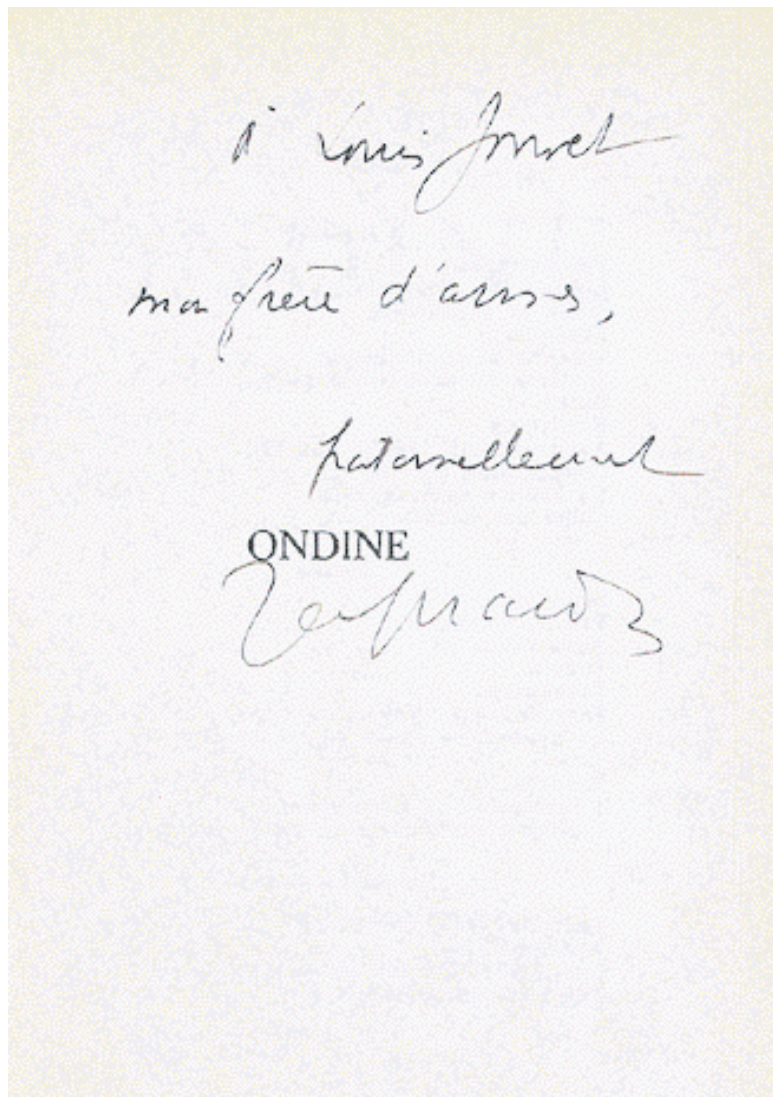 à Louis Jouvet
mon frère d'armes,
fraternellement
ONDINE
Jean Giraudoux